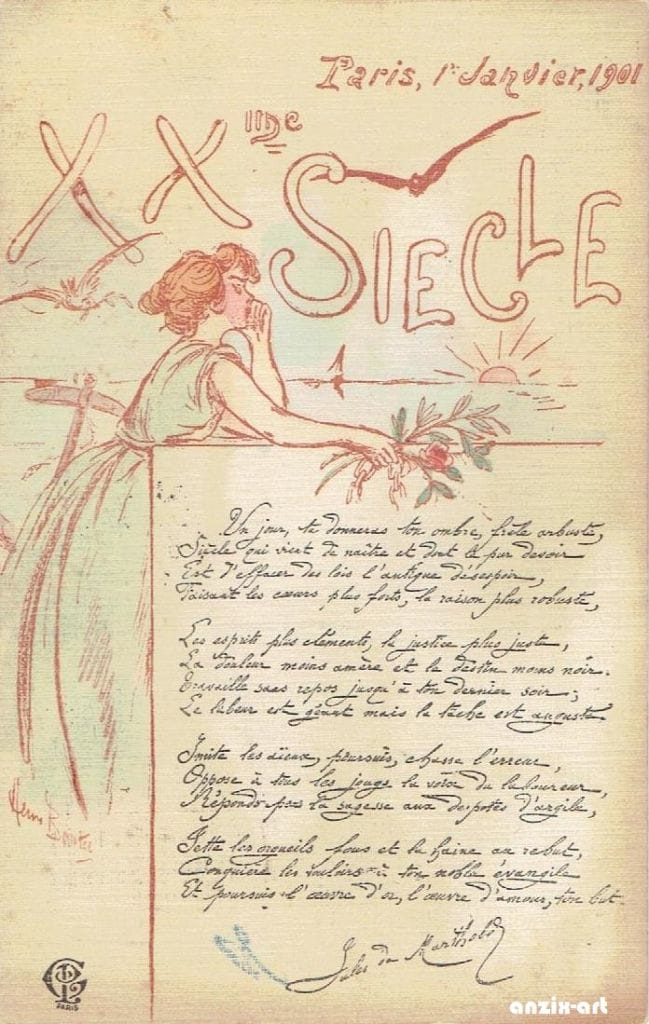 Paris, 1r Janvier, 1901
XXme SIECLE
Un jour, tu donneras ton ombre, frêle arbuste,
Siècle qui vient de naître et dont le pur devoir
Est d'effacer des lois l'antique désespoir,
Faisant les cœurs plus forts, la raison plus robuste,
Les esprits plus cléments, la justice plus juste,
La douleur moins amère et le destin moins noir.
Travaille sans repos jusqu'à ton dernier soir;
Le labeur est géant mais la tâche est auguste.
Imite les aïeux, poursuis, chasse l'erreur,
Oppose à tous les jougs la voix du laboureur,
Réponds par la sagesse aux despotes d'argile,
Jette les orgueils fous et la haine au rebut,
Conquière les vouloirs à ton noble évangile
Et poursuis l'œuvre d'or, l'œuvre d'amour, ton but.
Jules de Marthold
PARIS
anzix-art